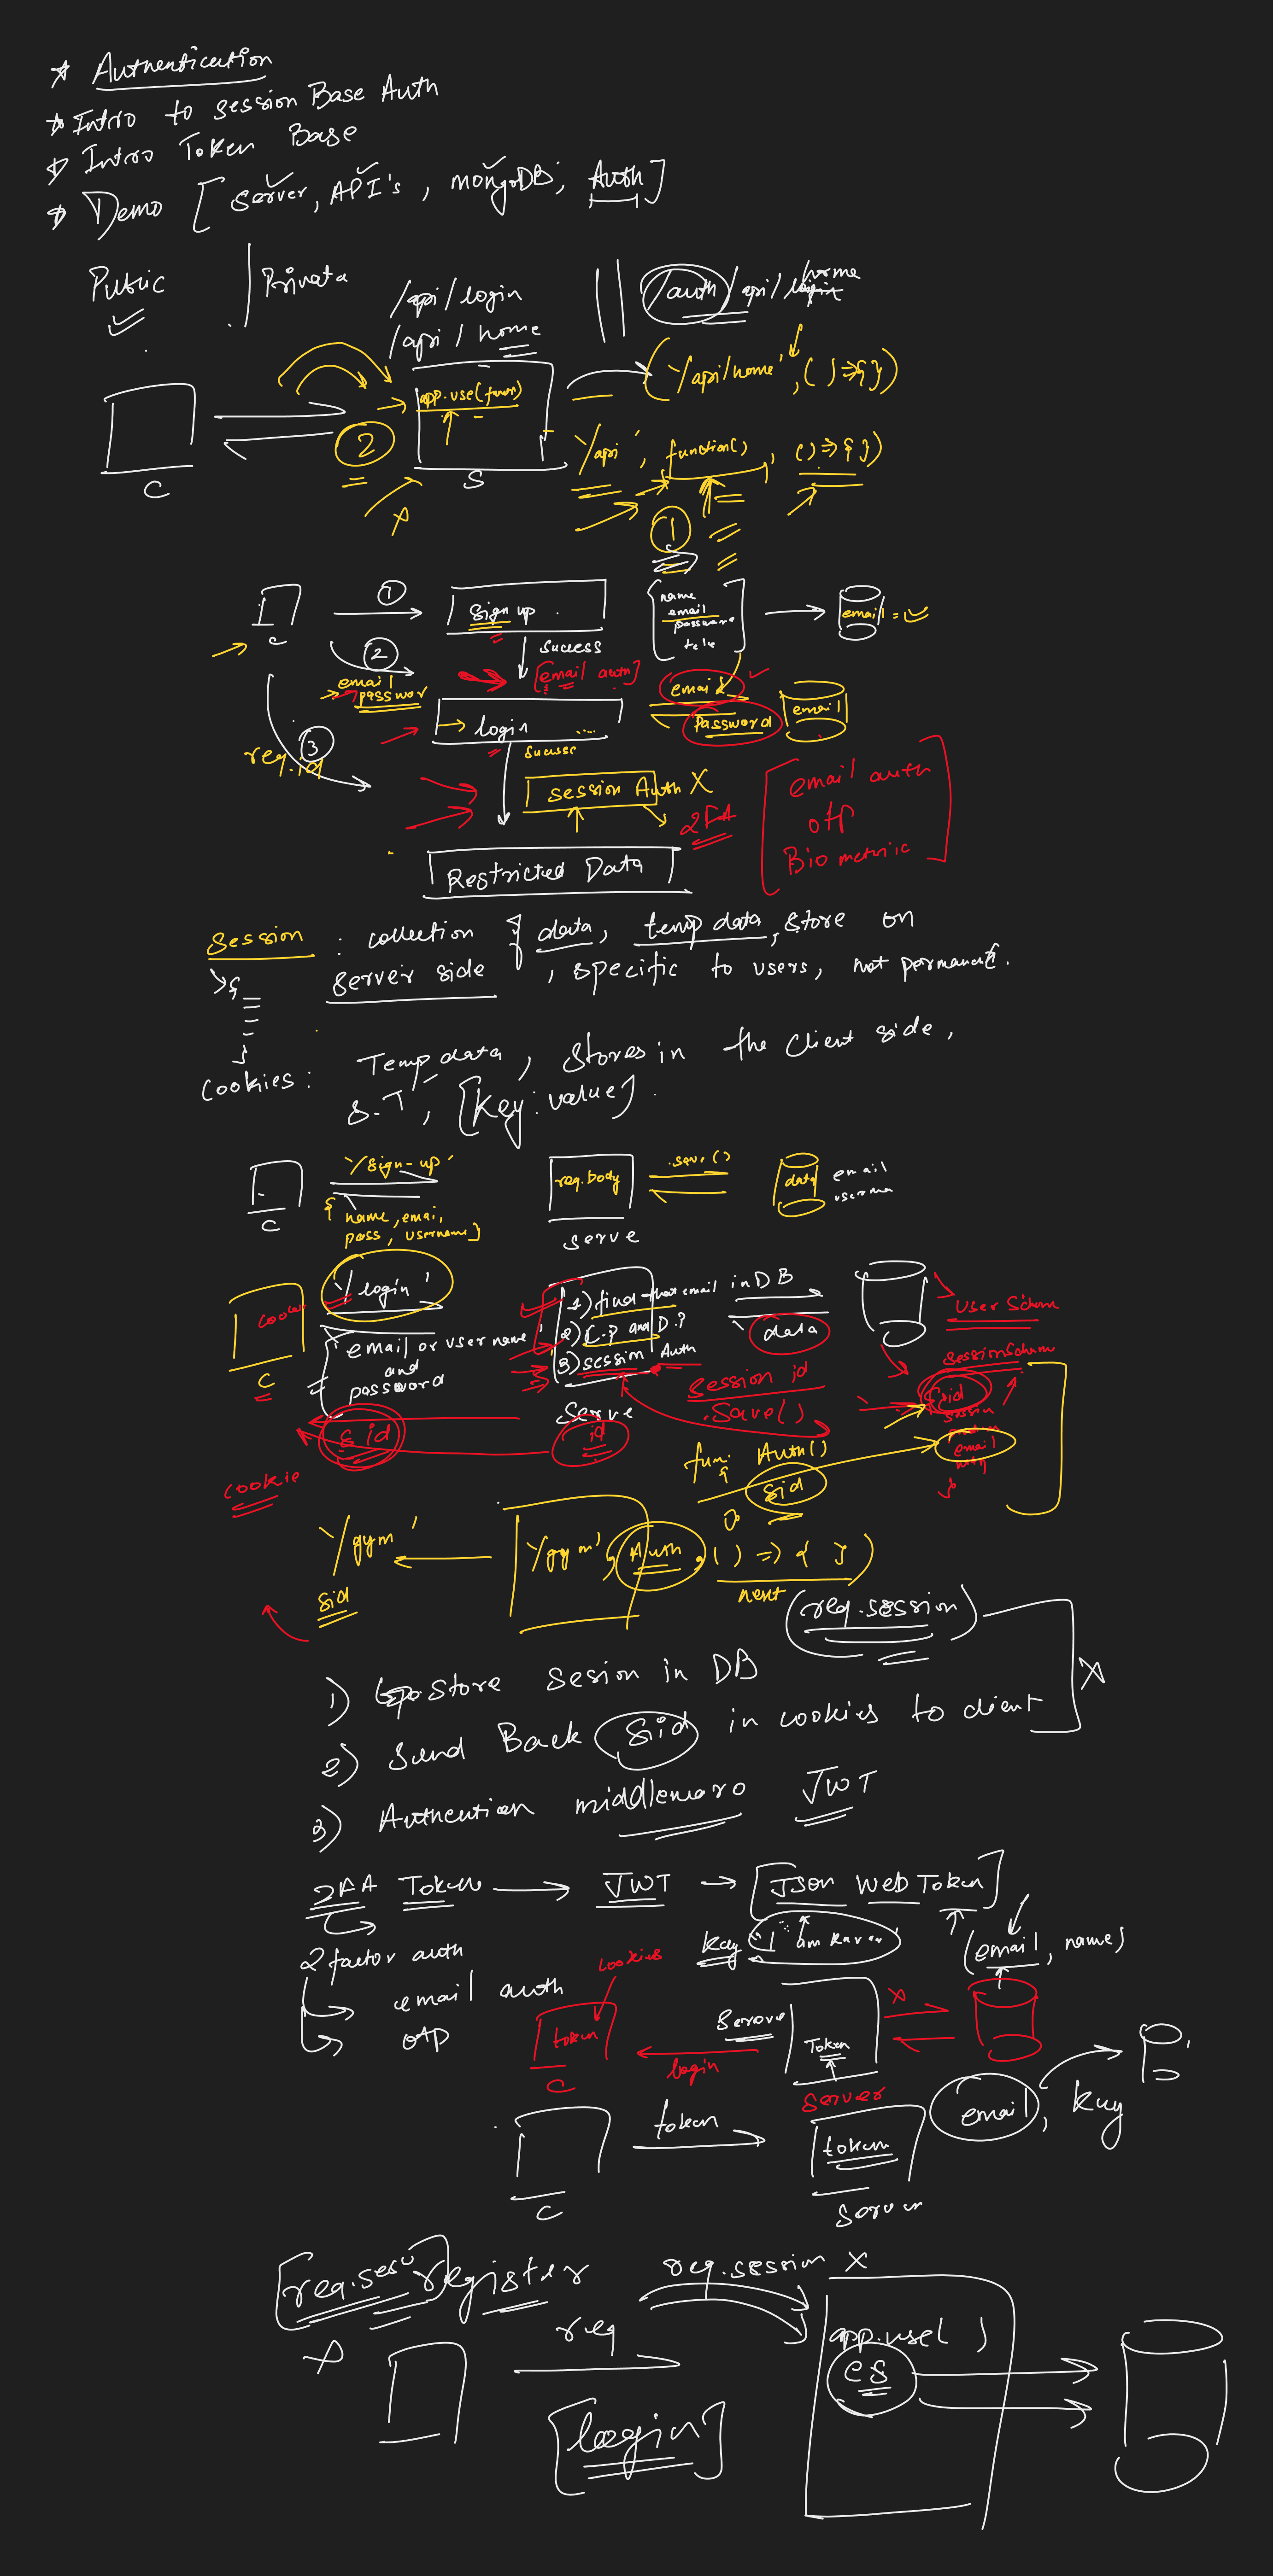 * Authentication
* Intro to session Base Auth
* Intro Token Base
* Demo [server, API's, mongoDB, Auth]
Public | Private
/api/login
/api/home
/auth/api/login
home
('/api/home', () => {})
app.use(
2
C
S
'/api', function(), () => {})
1
1
sign up
name
email
password
email =
C
success
2
[email auth]
email
password
email
password
email
login
3
req.id
success
session Auth X
2FA
email auth
otp
Bio metric
Restricted Data
Session : collection of data, temp data, store on
server side, specific to users, not permanent.
cookies : Temp data, stores in the client side,
S.T, [Key: value].
'/sign-up'
{ name, emai,
pass, username}
C
req.body
serve
.save()
data
email
'/login'
email or user name
and
password
C
1) find that email in DB
2) C.P and D.P
3) session Auth
serve
data
User Schem
sessionSchem
session id
.save()
sid
email
s id
id
cookie
fun. Auth()
sid
'/gym'
sid
'/gym', Auth, () => { })
next
(req.session)
1) Store Sesion in DB
2) Send Back Sid in cookies to client
X
3) Authention middleware JWT
2FA Token → JWT → [Json Web Token]
2 factor auth
email auth
OTP
cookies
key
(email, name)
token
C
login
Token
X
server
email, key
token
C
token
Server
register
req.session X
X
req
app.use( )
es
[login]